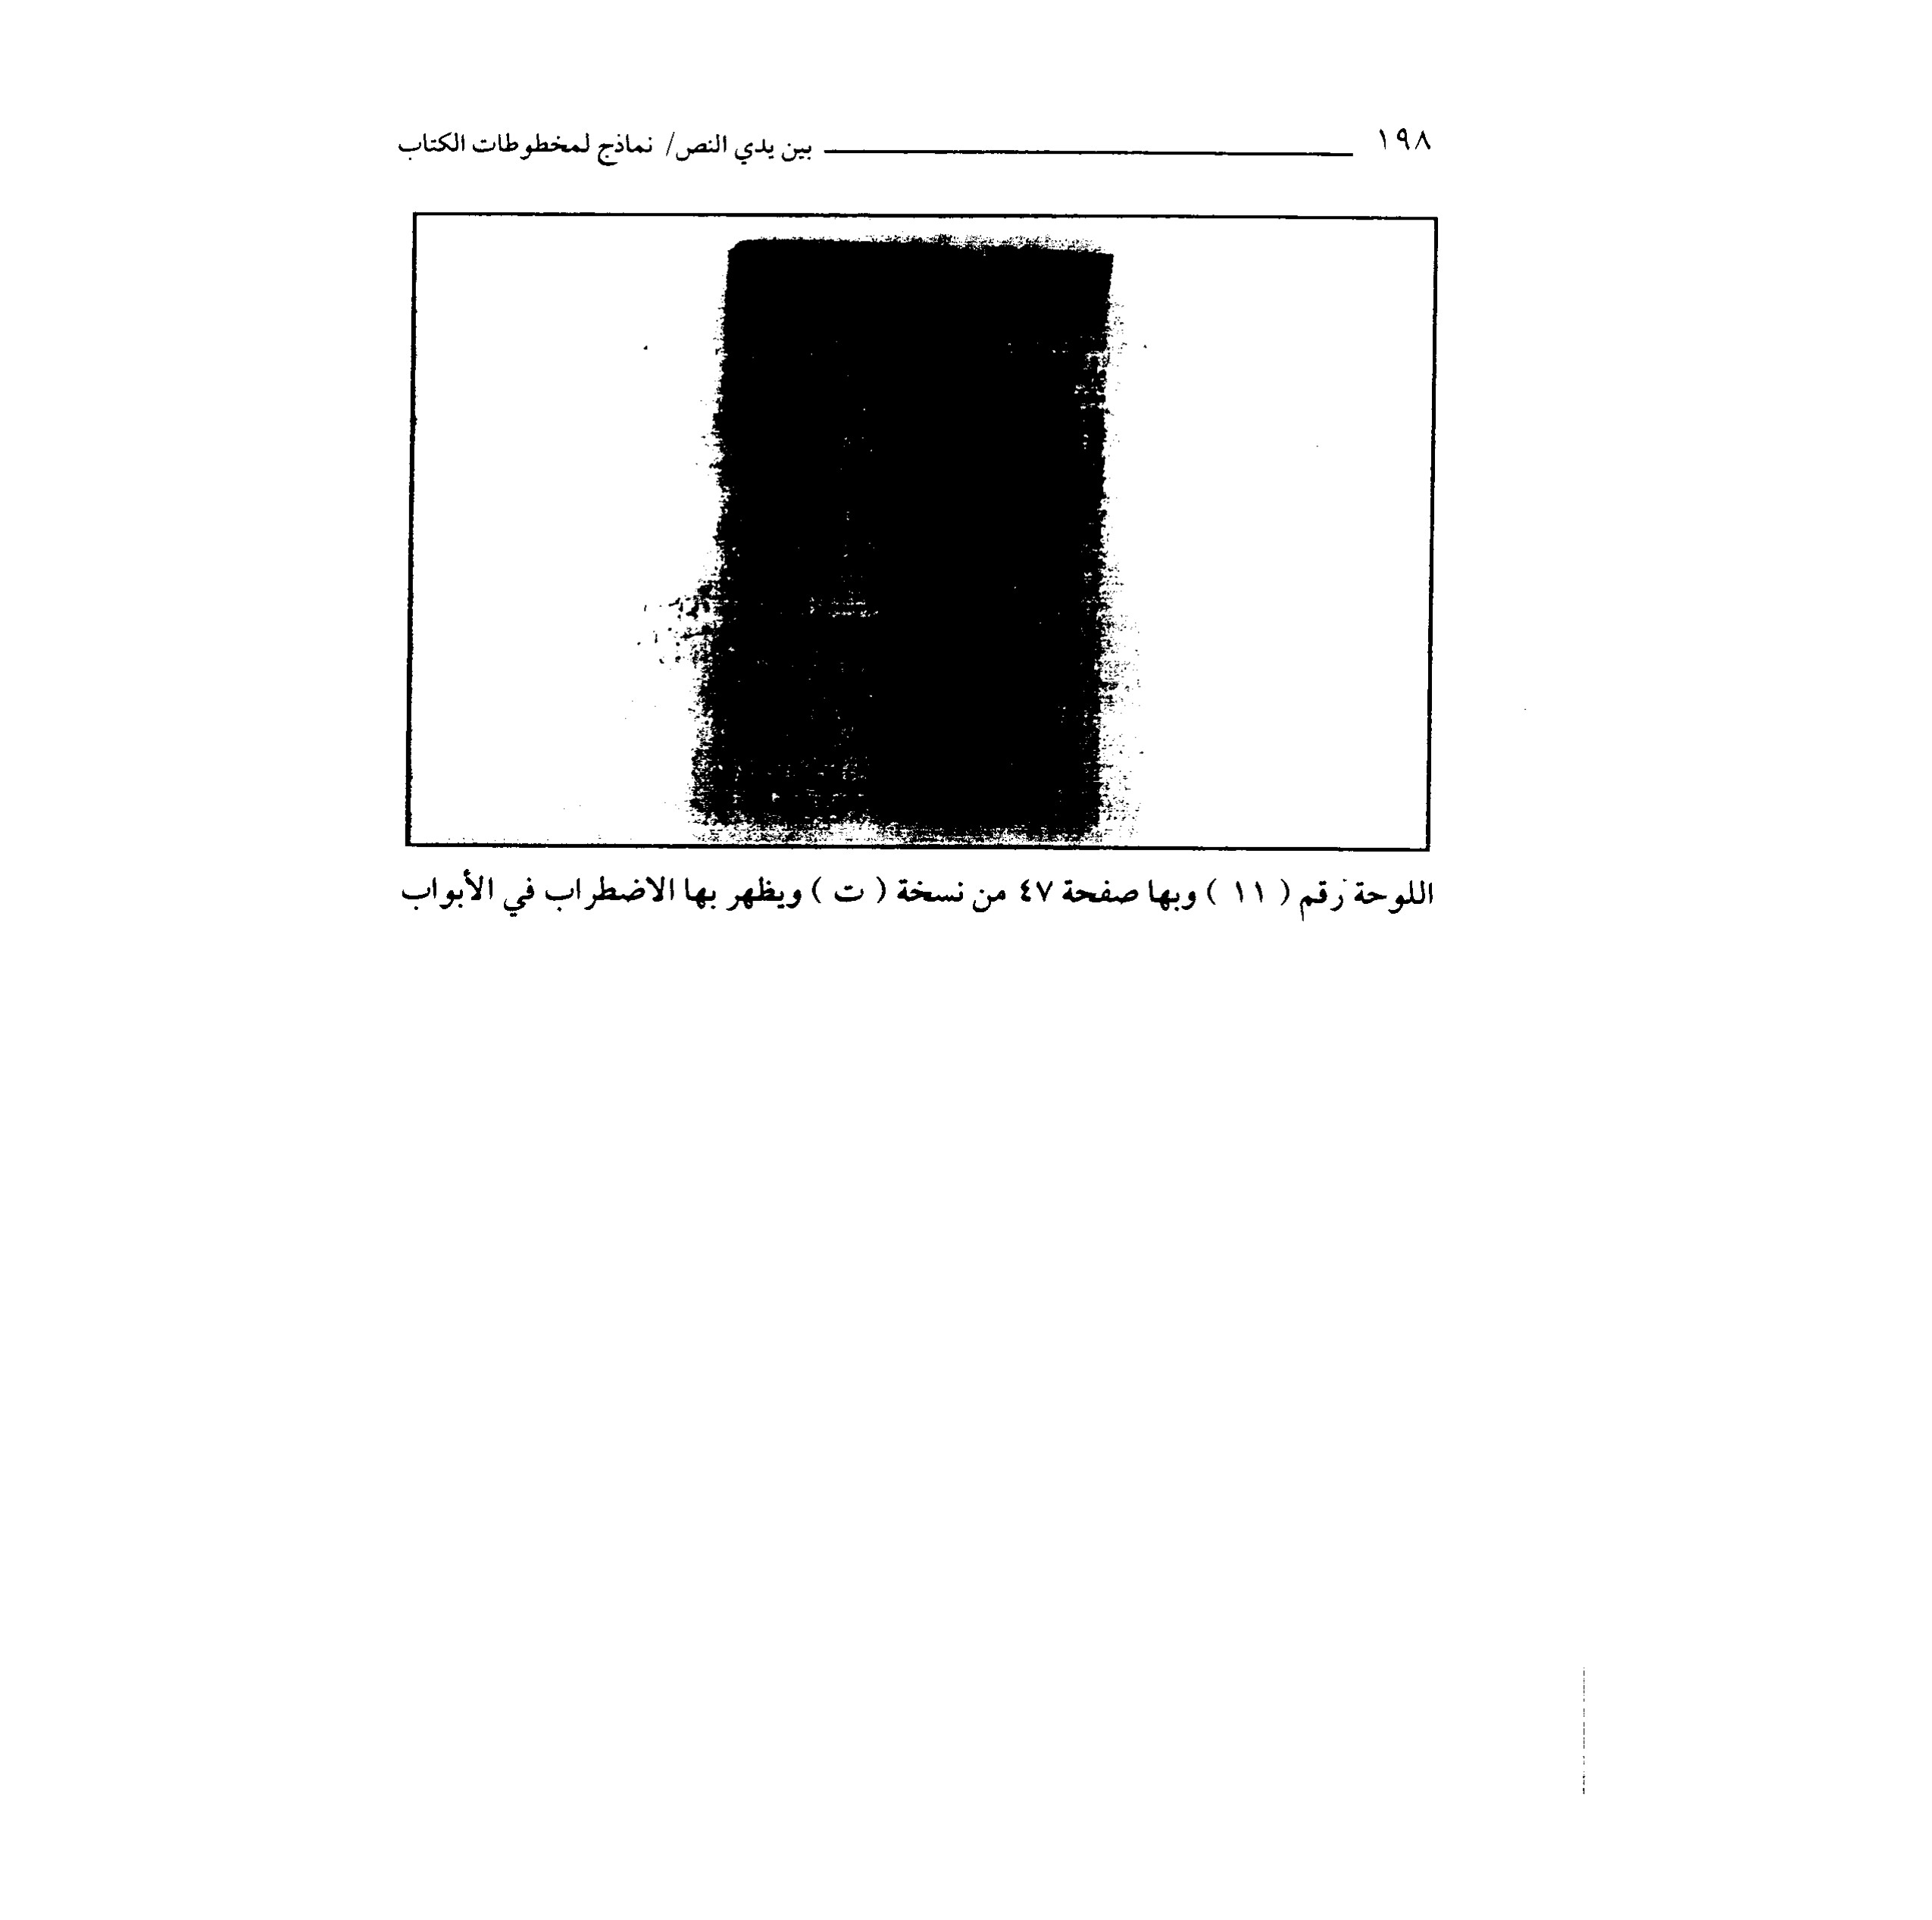 ١٩٨ بين يدي النص/ نماذج لمخطوطات الكتاب
اللوحة رقم ( ١١ ) وبها صفحة ٤٧ من نسخة ( ت ) ويظهر بها الاضطراب في الأبواب